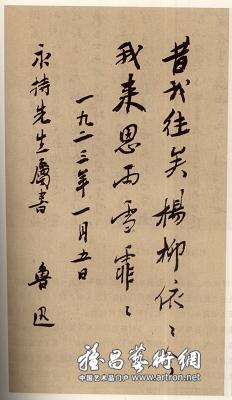 昔我往矣楊柳依〻
我来思雨雪霏〻
一九二三年一月五日
永持先生属書 魯迅
雅昌藝術網
中国艺术品门户 www.artron.net